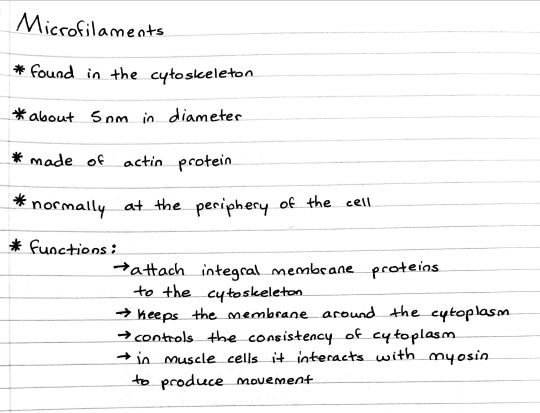 Microfilaments
* found in the cytoskeleton
* about 5nm in diameter
* made of actin protein
* normally at the periphery of the cell
* functions:
→ attach integral membrane proteins
to the cytoskeleton
→ Keeps the membrane around the cytoplasm
→ controls the consistency of cytoplasm
→ in muscle cells it interacts with myosin
to produce movement